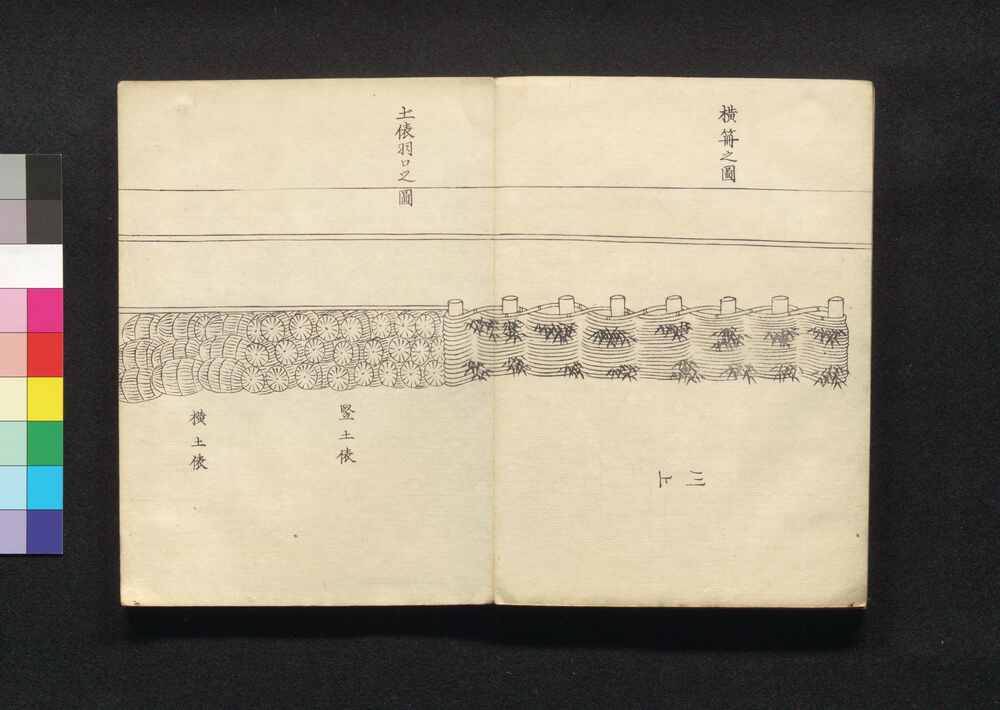 横笧之圖
三
上
土俵羽口之圖
竪土俵
横土俵